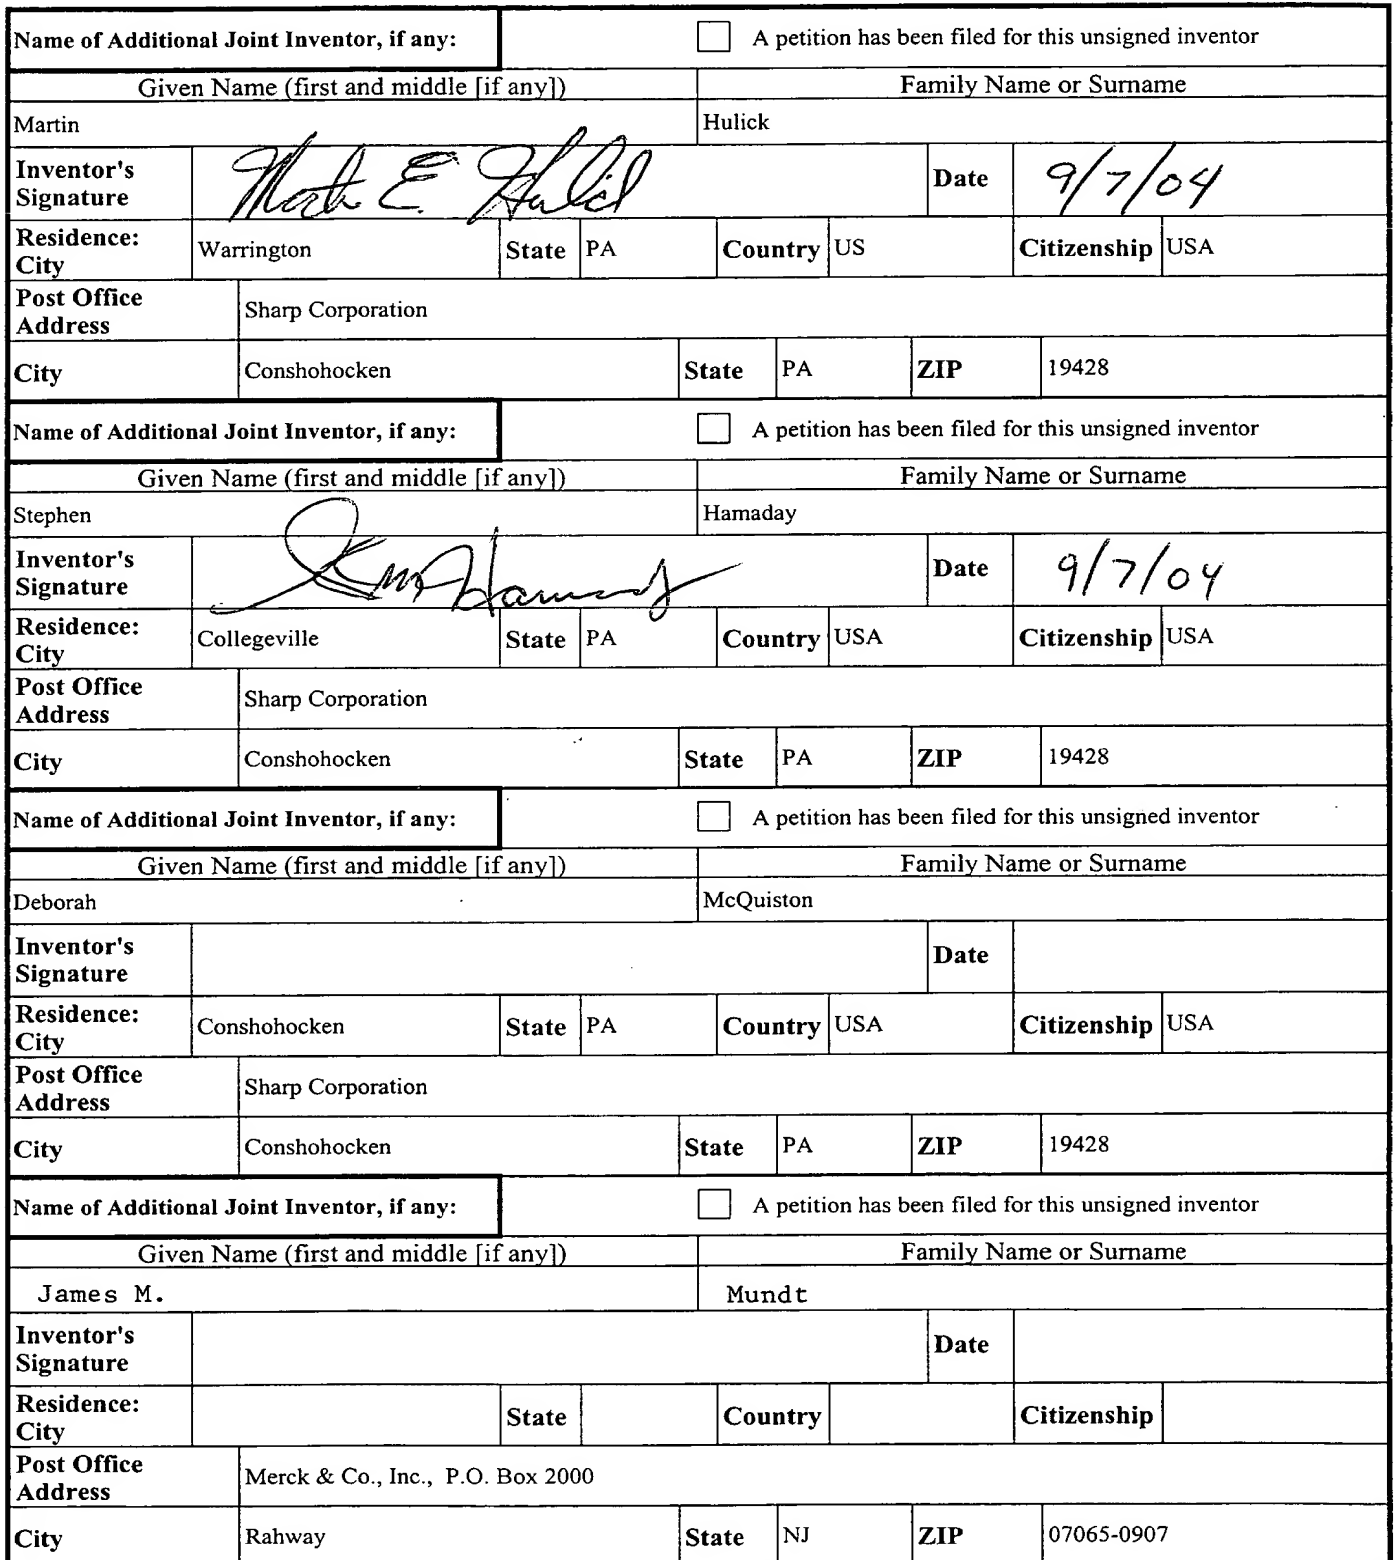 Name of Additional Joint Inventor, if any: A petition has been filed for this unsigned inventor
Given Name (first and middle [if any]) Family Name or Surname
Martin Hulick
Inventor's Signature Martin E. Hulick Date 9/7/04
Residence: City Warrington State PA Country US Citizenship USA
Post Office Address Sharp Corporation
City Conshohocken State PA ZIP 19428
Name of Additional Joint Inventor, if any: A petition has been filed for this unsigned inventor
Given Name (first and middle [if any]) Family Name or Surname
Stephen Hamaday
Inventor's Signature Date 9/7/04
Residence: City Collegeville State PA Country USA Citizenship USA
Post Office Address Sharp Corporation
City Conshohocken State PA ZIP 19428
Name of Additional Joint Inventor, if any: A petition has been filed for this unsigned inventor
Given Name (first and middle [if any]) Family Name or Surname
Deborah McQuiston
Inventor's Signature Date
Residence: City Conshohocken State PA Country USA Citizenship USA
Post Office Address Sharp Corporation
City Conshohocken State PA ZIP 19428
Name of Additional Joint Inventor, if any: A petition has been filed for this unsigned inventor
Given Name (first and middle [if any]) Family Name or Surname
James M. Mundt
Inventor's Signature Date
Residence: City State Country Citizenship
Post Office Address Merck & Co., Inc., P.O. Box 2000
City Rahway State NJ ZIP 07065-0907